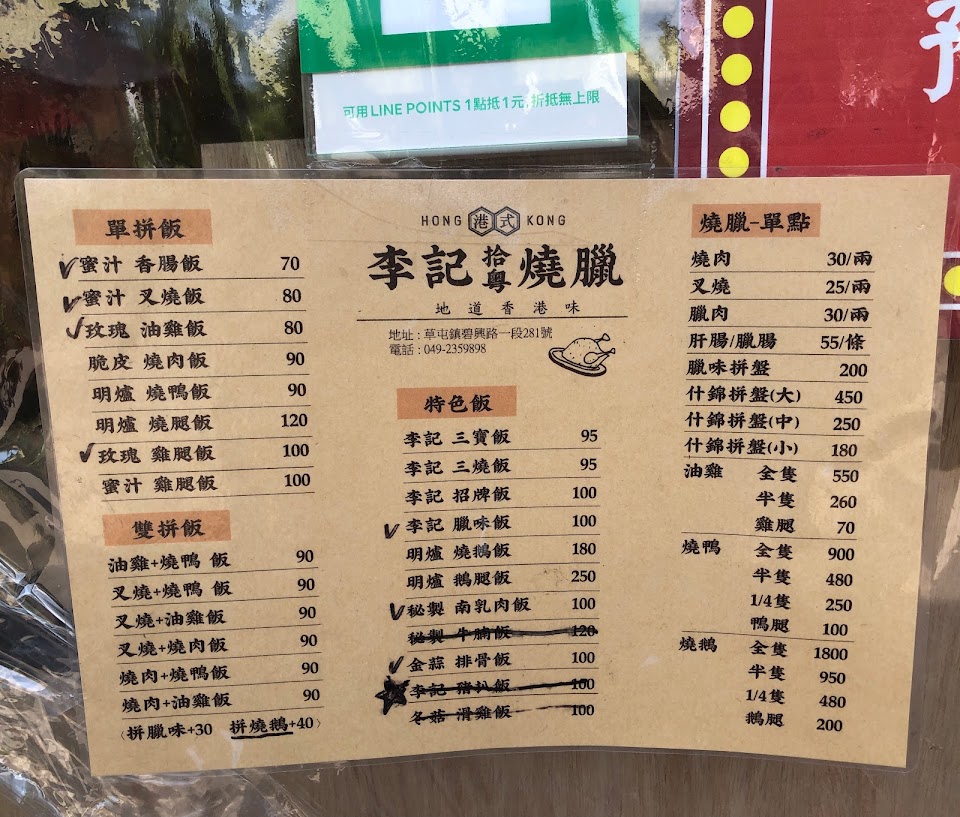 可用LINE POINTS 1點抵1元,折抵無上限
HONG 港式 KONG
李記 拾粵 燒臘
地道香港味
地址:草屯鎮碧興路一段281號
電話:049-2359898
單拼飯
蜜汁 香腸飯 70
蜜汁 叉燒飯 80
玫瑰 油雞飯 80
脆皮 燒肉飯 90
明爐 燒鴨飯 90
明爐 燒腿飯 120
玫瑰 雞腿飯 100
蜜汁 雞腿飯 100
雙拼飯
油雞+燒鴨 飯 90
叉燒+燒鴨 飯 90
叉燒+油雞飯 90
叉燒+燒肉飯 90
燒肉+燒鴨飯 90
燒肉+油雞飯 90
(拼臘味+30 拼燒鵝+40)
特色飯
李記 三寶飯 95
李記 三燒飯 95
李記 招牌飯 100
李記 臘味飯 100
明爐 燒鵝飯 180
明爐 鵝腿飯 250
秘製 南乳肉飯 100
秘製 牛腩飯 120
金蒜 排骨飯 100
李記 豬扒飯 100
冬菇 滑雞飯 100
燒臘-單點
燒肉 30/兩
叉燒 25/兩
臘肉 30/兩
肝腸/臘腸 55/條
臘味拼盤 200
什錦拼盤(大) 450
什錦拼盤(中) 250
什錦拼盤(小) 180
油雞 全隻 550
半隻 260
雞腿 70
燒鴨 全隻 900
半隻 480
1/4隻 250
鴨腿 100
燒鵝 全隻 1800
半隻 950
1/4隻 480
鵝腿 200